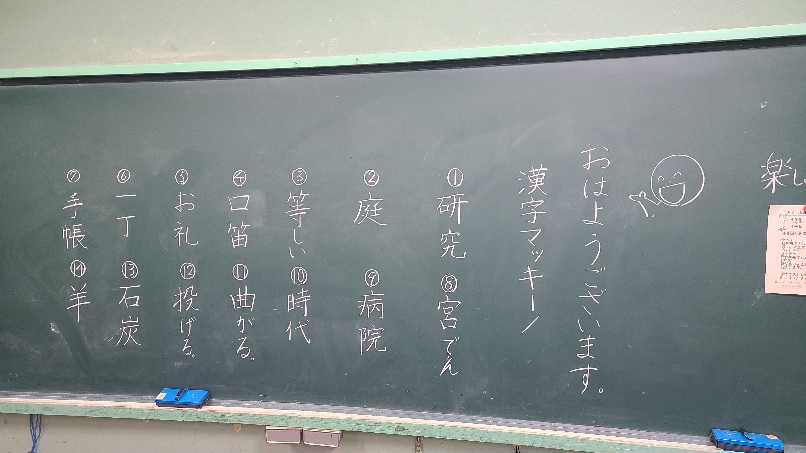 楽し
おはようございます。
漢字マッキーノ
①研究 ⑧宮でん
②庭 ⑨病院
③等しい ⑩時代
④口笛 ⑪曲がる。
⑤お礼 ⑫投げる。
⑥一丁 ⑬石炭
⑦手帳 ⑭羊